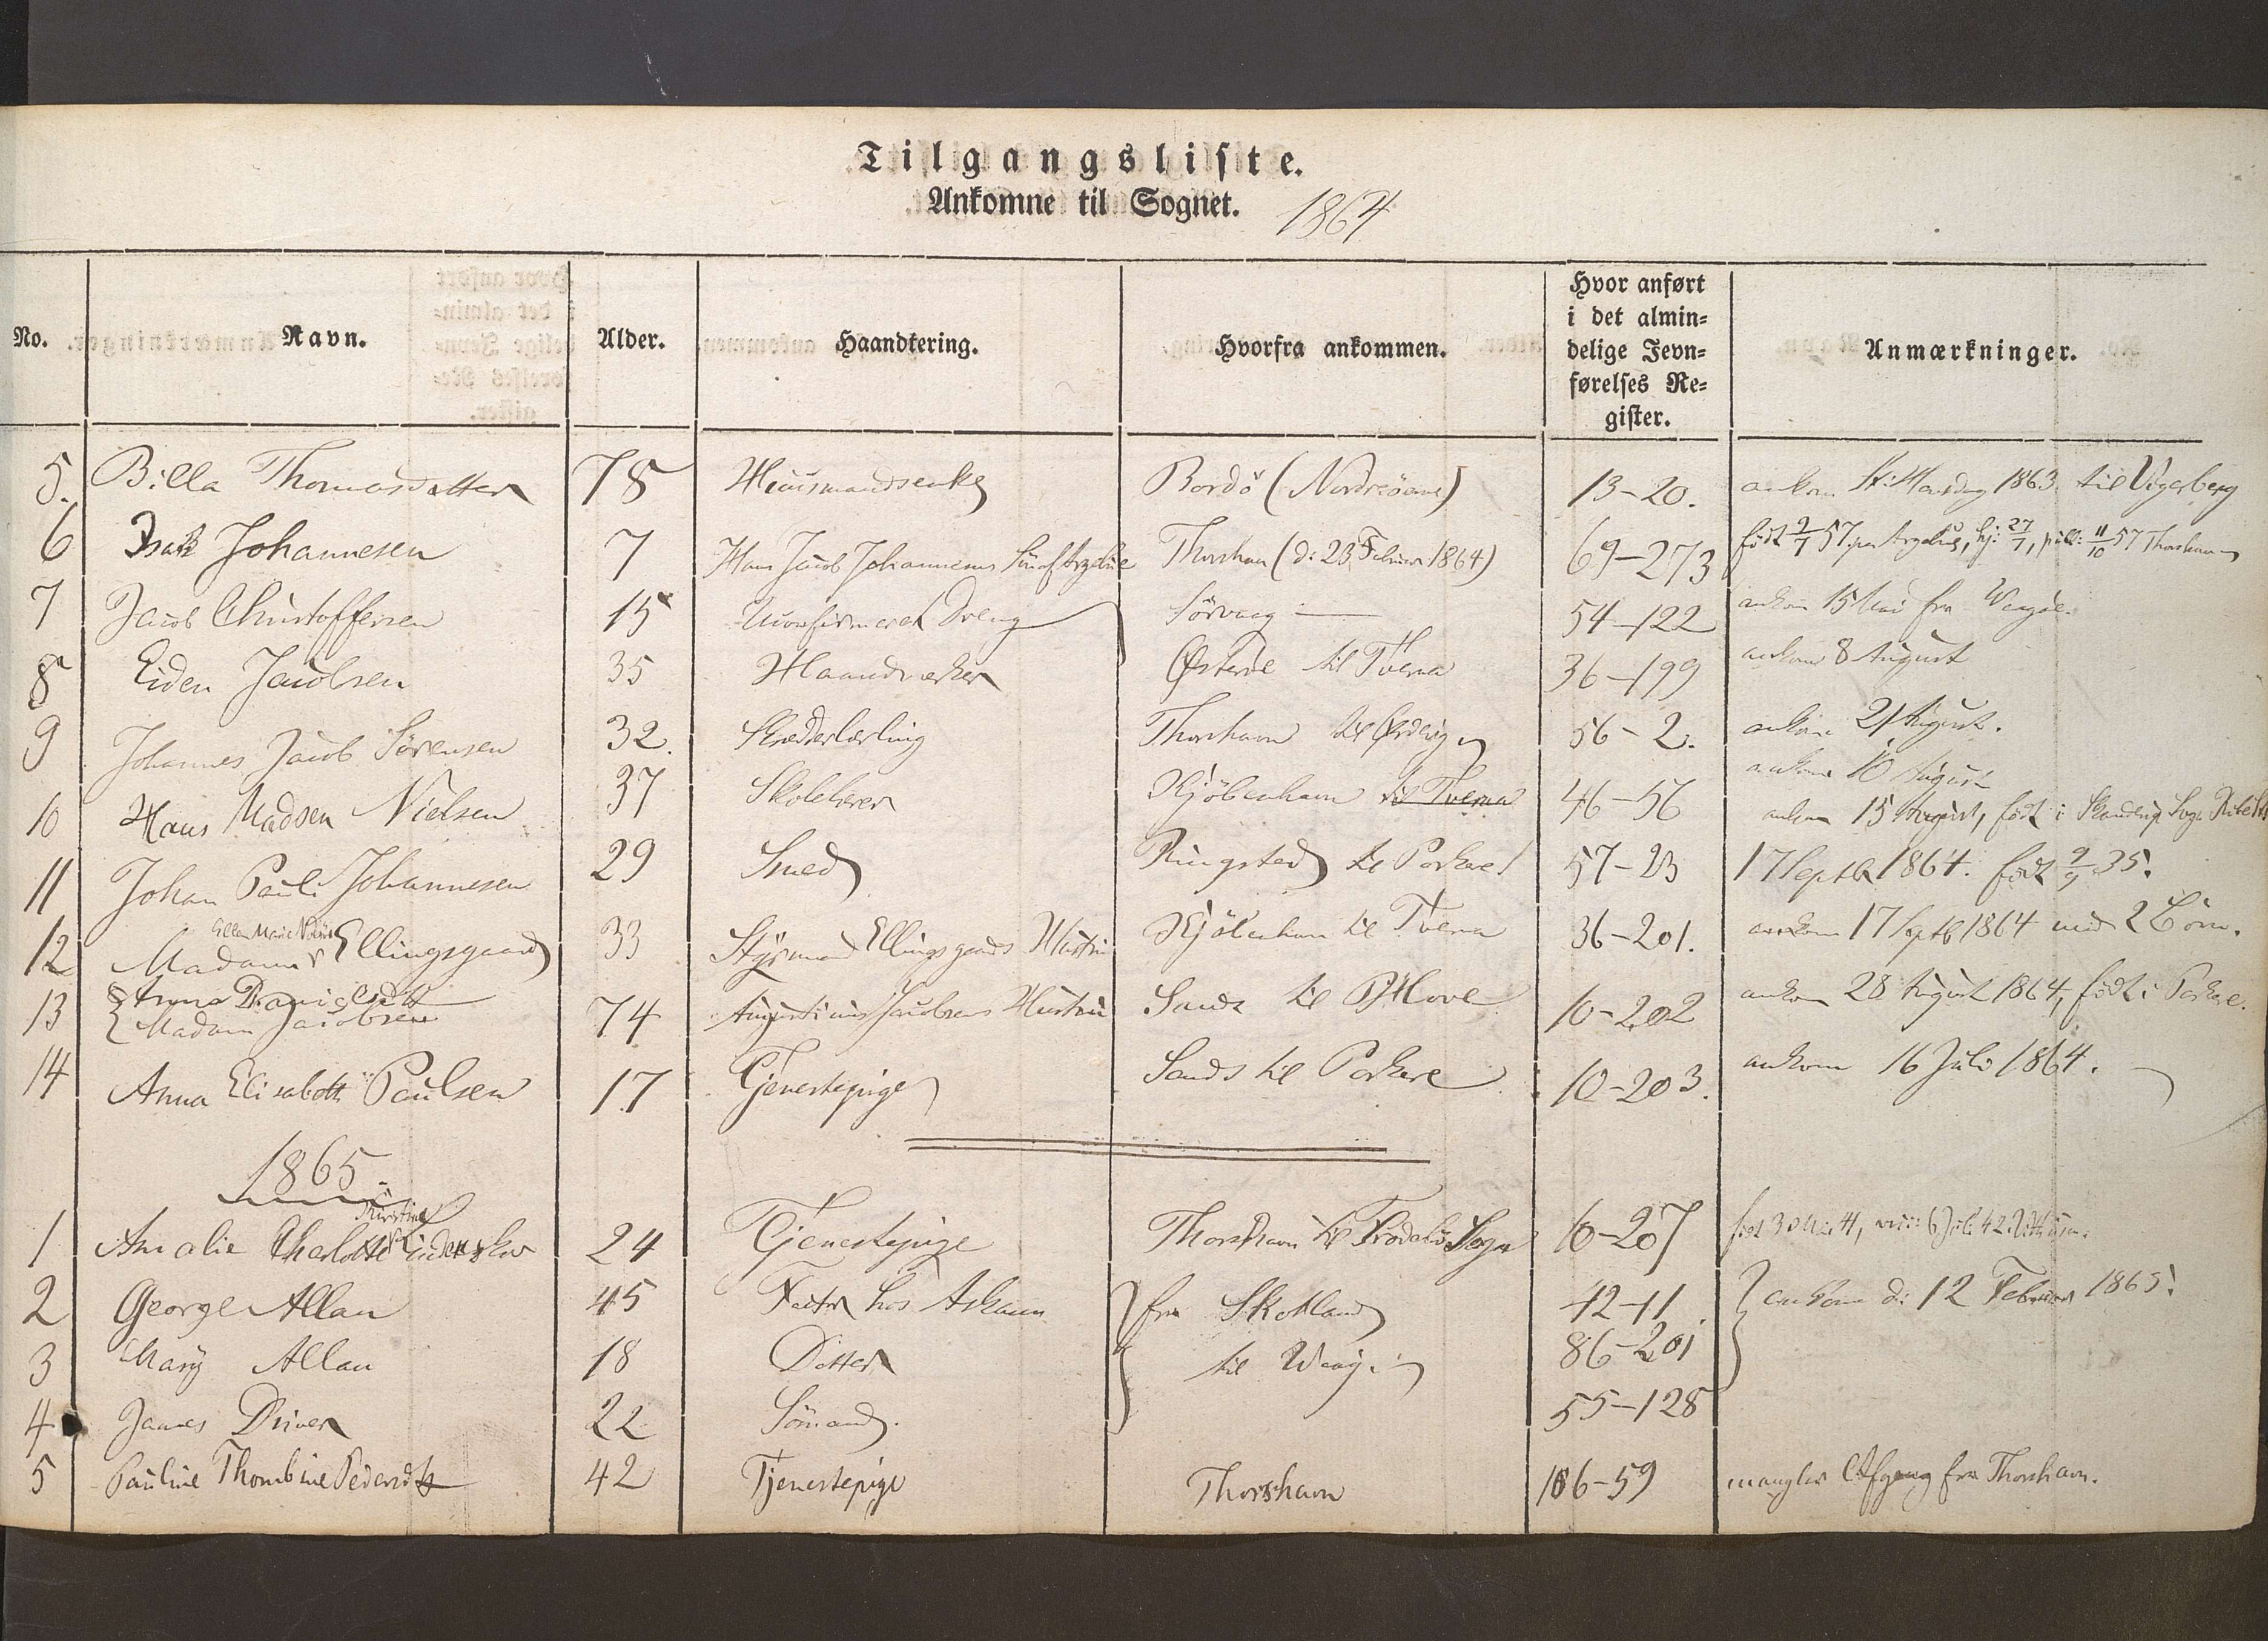 Tilgangsliste.
Ankomne til Sognet. 1864
No. Navn. Alder. Haandtering. Hvorfra ankommen. Hvor anført i det almin= delige Jevn= førelses Re= gister. Anmærkninger.
5. Billa Thomasdatter 78 Huusmandsenke Bordö (Nordreöerne) 13-20. ankom 1863 til
6 Isak Johannesen 7 Hans Jacob Johannesens Thorshavn (d: 23 Februar 1864) 69-273 født 9/7 57 27/7, 11/10 57 Thorshavn
7 Jacob Christoffersen 15 Uconfirmeret Dreng Sörvaag 54-122 ankom 15 Mai fra
8 Eiden Jacobsen 35 Haandværker Østerøe til Tveraa 36-199 ankom 8 August
9 Johannes Jacob Sörensen 32. Skrædderlærling Thorshavn til 56-2. ankom 21 August.
10 Hans Madsen Nielsen 37 Skolelærer Kjöbenhavn til Tveraa 46-56 ankom 10 August
ankom 15 August, født i Sogn
11 Johan Pauli Johannesen 29 Smed Ringsted til Porkere 57-23 17 Septbr 1864. født 9/9 35.
12 Madame Ellen Marie Ellingsgaard 33 Styrmand Ellingsgaards Hustru Kjöbenhavn til Tveraa 36-201. ankom 17 Septb 1864 med 2 Börn.
13 Anna Danielsdtt
Madam Jacobsen 74 Augustinus Jacobsens Hustru Sands til Hove 10-202 ankom 28 August 1864, født i Porkere.
14 Anna Elisabeth Paulsen 17 Tjenestepige Sands til Porkere 10-203. ankom 16 Juli 1864.
1865.
1 Amalie Charlotte Kirstine 24 Tjenestepige Thorshavn til Frodebö Sogn 10-207 født 30 Mai 41,
2 George Allan 45 Factor hos fra Skotland 42-11 ankom d: 12 Februar 1865.
3 Mary Allan 18 Datter til Waag 86-201
4 James Driver 22 Sömand. 55-128
5 Pauline Thombine Pedersdtr 42 Tjenestepige Thorshavn 106-59 mangler Afgang fra Thorshavn.